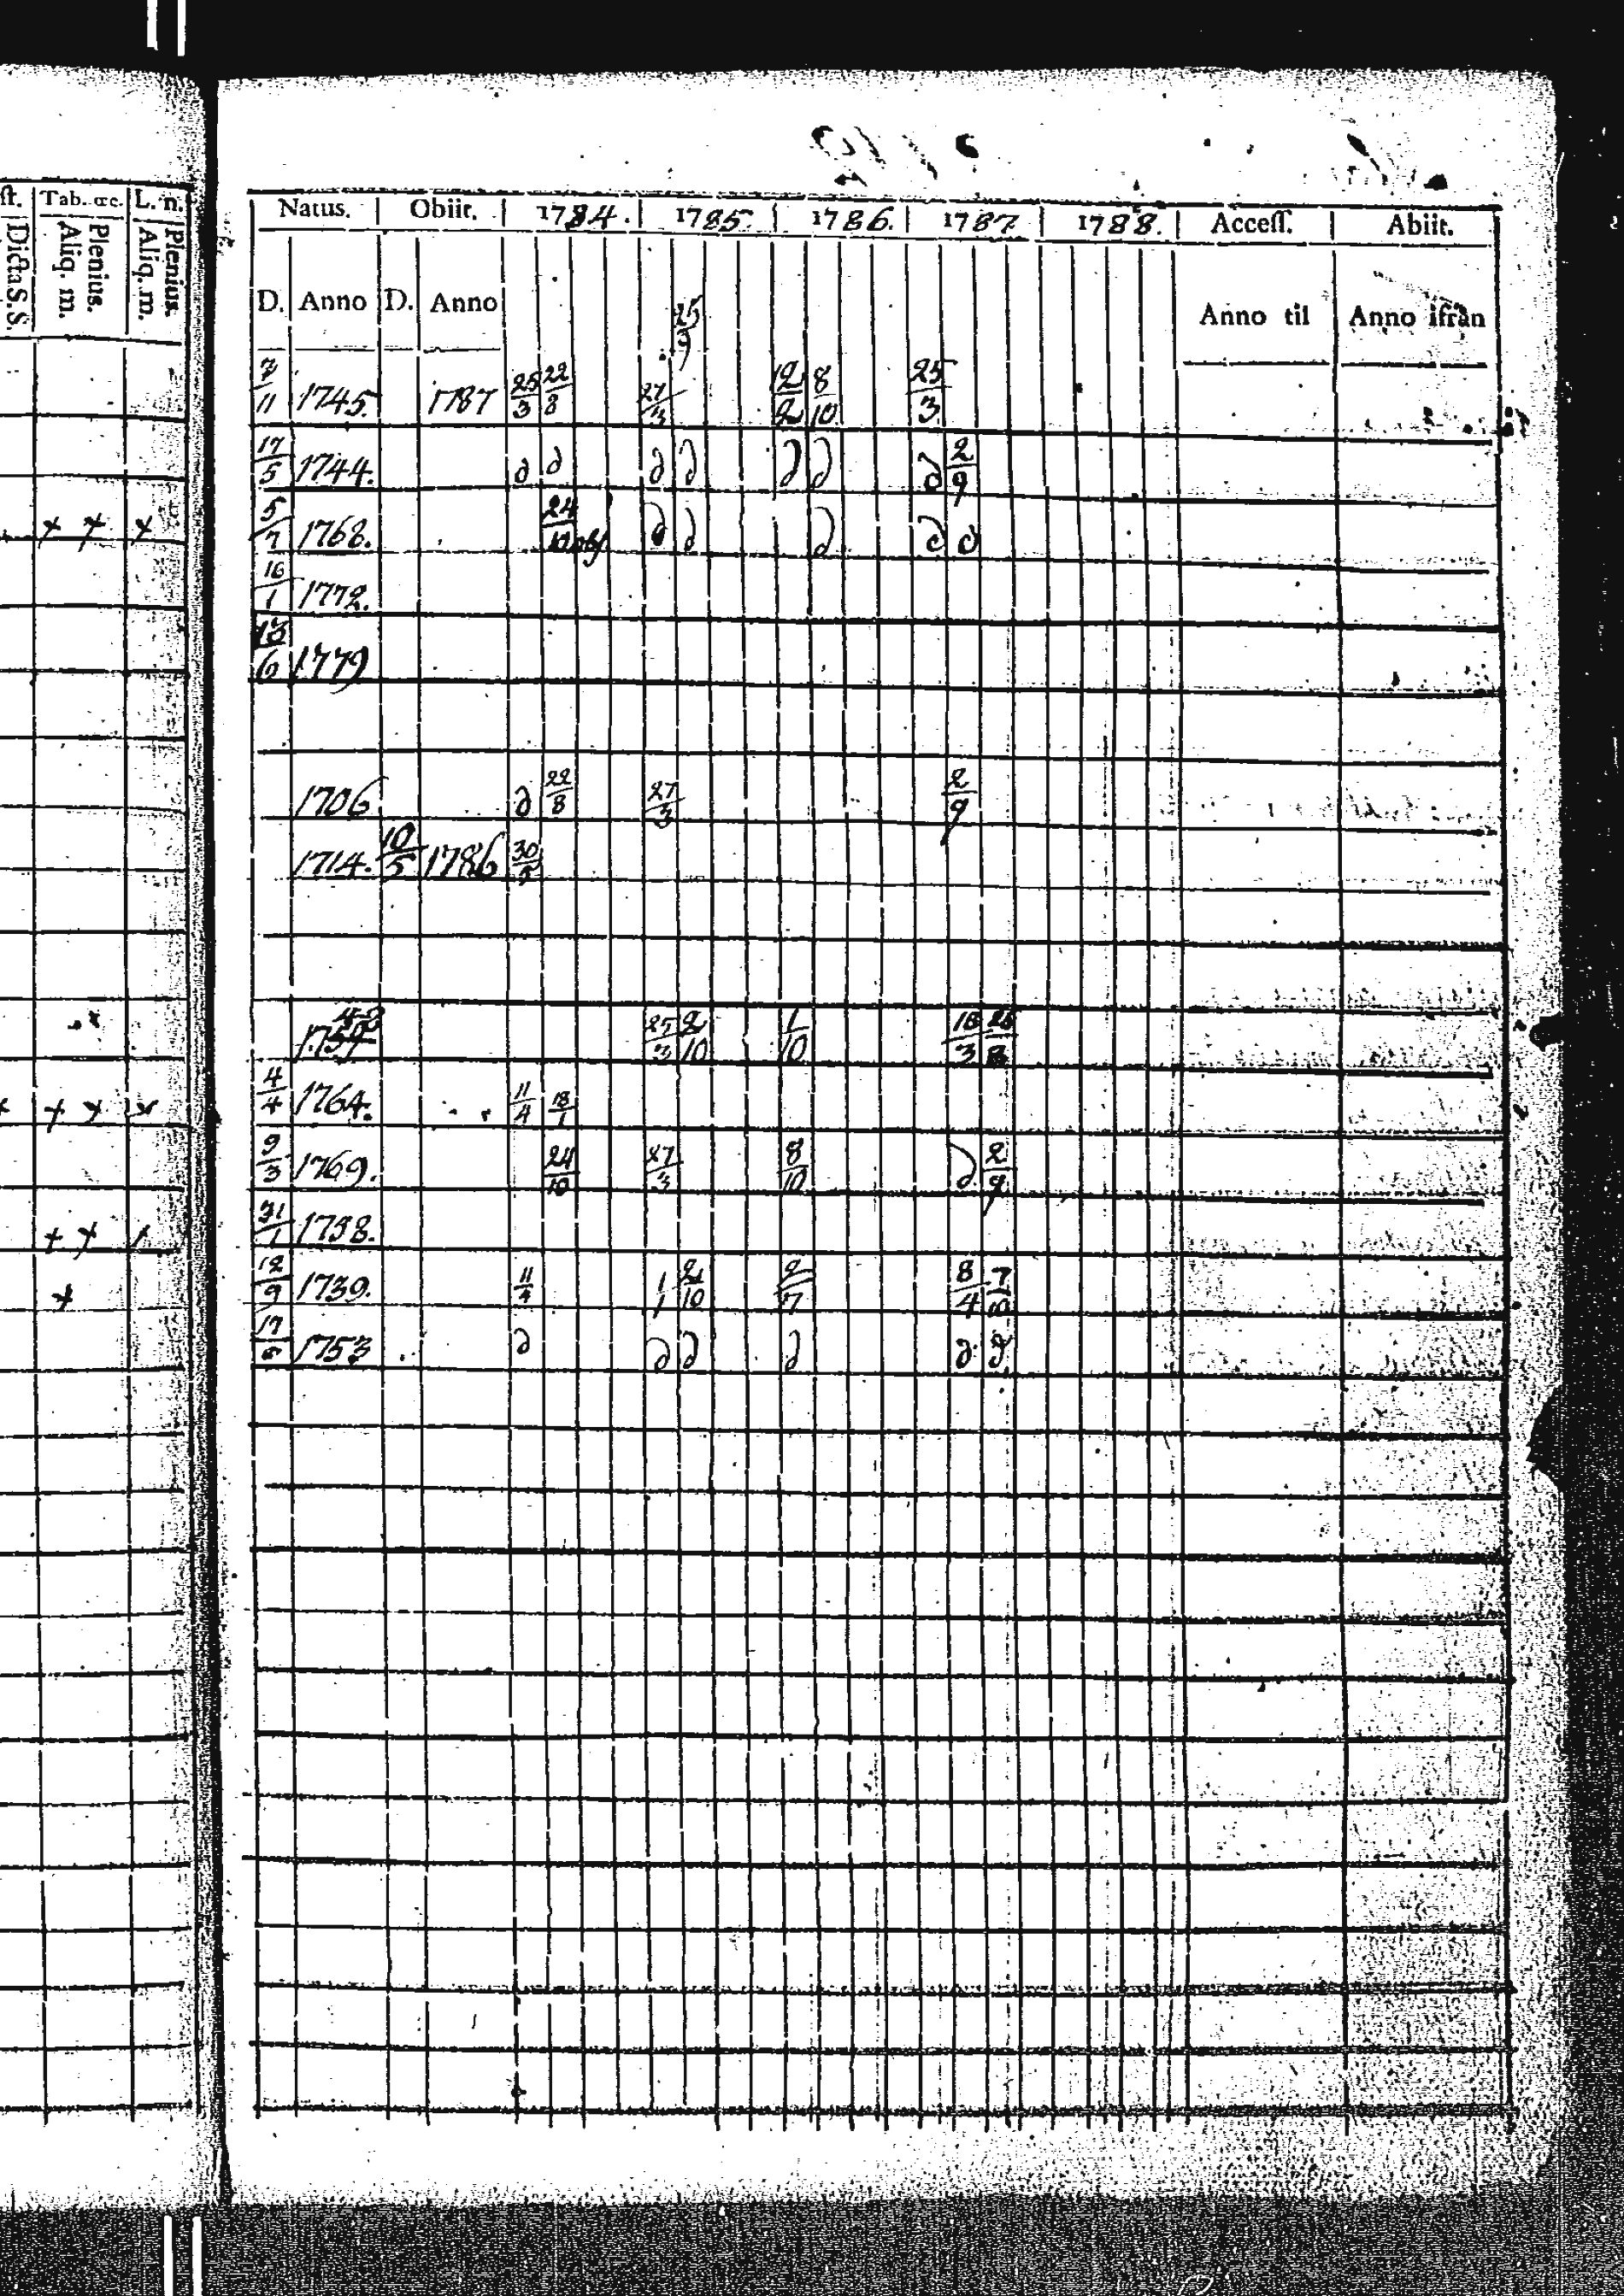 Tab. œc. L. n.
Dicta S. S. Plenius. Aliq. m. Plenius. Aliq. m.
Natus. Obiit. 1784. 1785. 1786. 1787. 1788. Access. Abiit.
D. Anno D. Anno Anno til Anno ifrån
25/9
7/11 1745. 1787 25/3 22/8 27/3 12/2 8/10 25/3
17/5 1744. ∂ ∂ ∂ ∂ ∂ ∂ ∂ 2/9
+ + + 5/7 1768. 24/10 ∂ ∂ ∂ ∂ ∂
16/1 1772.
13/6 1779
1706 ∂ 22/8 27/3 2/9
1714. 10/5 1786 30/5
43
1759 25/3 2/10 1/10 18/3
+ + + + 4/4 1764. 11/4 18/1
9/3 1769. 24/10 27/3 8/10 ∂ 2/9
+ + / 31/1 1758.
+ 12/9 1739. 11/4 1/1 21/10 2/7 8/4 7/10
17/6 1753 ∂ ∂ ∂ ∂ ∂ ∂